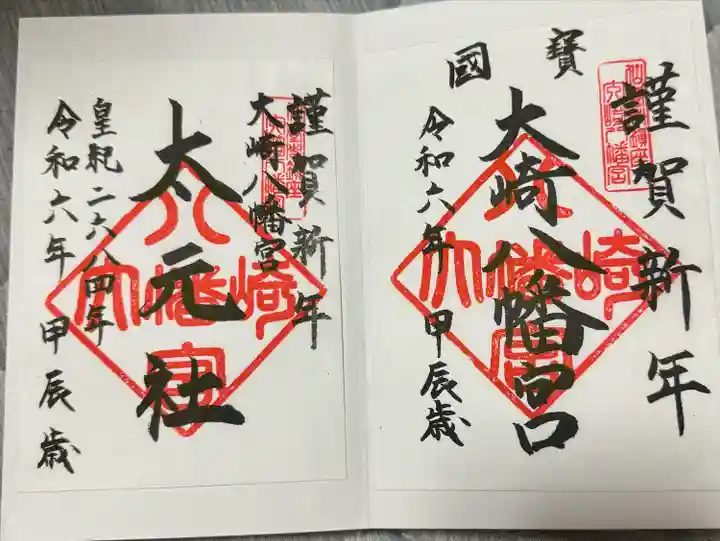 謹賀新年
國寶
大崎八幡宮
令和六年 甲辰歳
謹賀新年
大崎八幡宮
太元社
皇紀二六八四年
令和六年 甲辰歳
大崎八幡宮
八幡宮